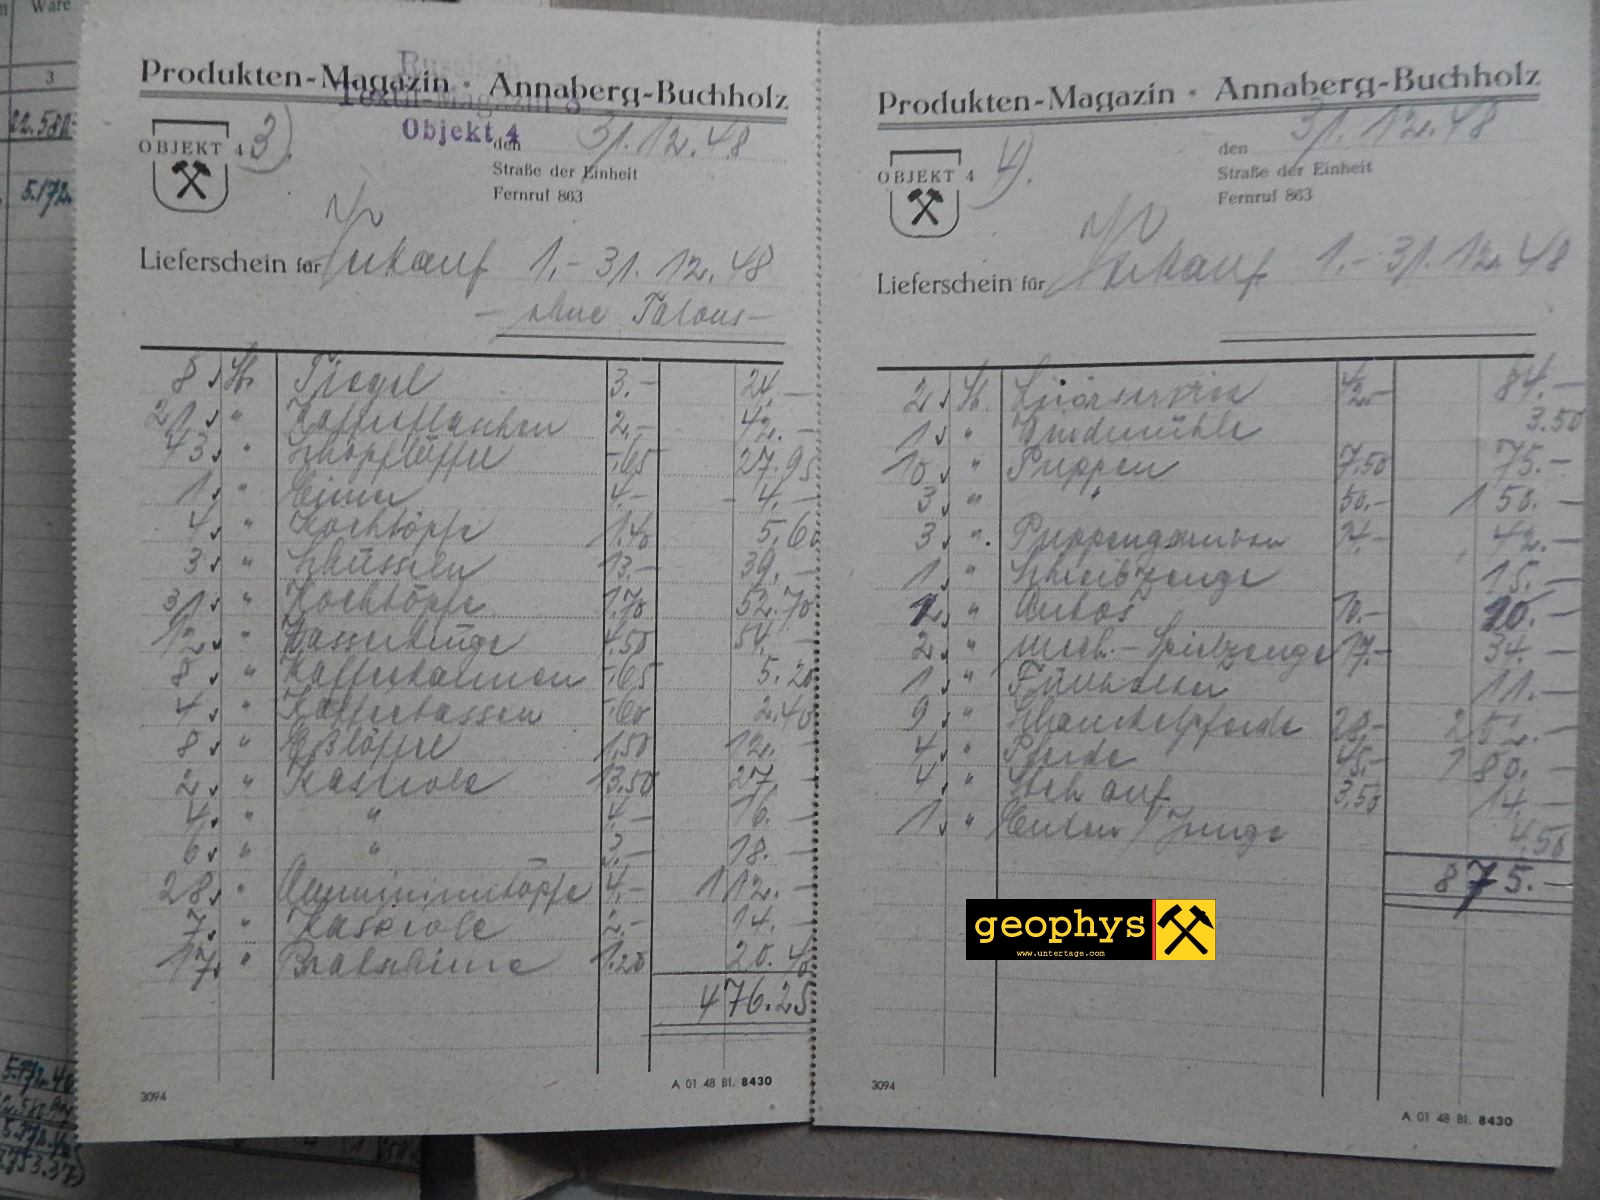 Ware
3
22.580.-
5.172.
Produkten-Magazin · Annaberg-Buchholz
Textil-Magazin 8
Objekt 4
OBJEKT 4
3).
den 31.12.48
Straße der Einheit
Fernruf 863
Lieferschein für Verkauf 1.- 31.12.48
- ohne Talons -
8 St. Tiegel 3.- 24.-
21 " Kaffeeflaschen 2.- 42.-
43 " Schöpflöffel -.65 27.95
1 " Eimer 4.- 4.-
4 " Kochtöpfe 1.40 5.60
3 " Schüsseln 13.- 39.-
31 " Kochtöpfe 1.70 52.70
12 " Wasserkrüge 4.50 54.-
8 " Kaffeekannen -.65 5.20
4 " Kaffeetassen -.60 2.40
8 " Eßlöffel 1.50 12.-
2 " Kasserole 13.50 27.-
4 " " 4.- 16.-
6 " " 3.- 18.-
28 " Aluminiumtöpfe 4.- 112.-
7 " Kaserole 2.- 14.-
17 " 1.20 20.40
476.25
3094
A 01 48 Bl. 8430
Produkten-Magazin · Annaberg-Buchholz
OBJEKT 4
4).
den 31.12.48
Straße der Einheit
Fernruf 863
Lieferschein für Verkauf 1.- 31.12.48
2 St. Likörservice 42.- 84.-
1 " 3.50
10 " Puppen 7.50 75.-
3 " " 50.- 150.-
3 " 14.- 42.-
1 " Schreibzeuge 15.-
" Autos 10.- 10.-
2 " mech.-Spielzeuge 17.- 34.-
1 " Füllhalter 11.-
9 " Schaukelpferde 28.- 252.-
4 " Pferde 45.- 180.-
4 " Steh auf 3.50 14.-
1 " Enten / Junge 4.50
875.-
geophys
www.untertage.com
3094
A 01 48 Bl. 8430